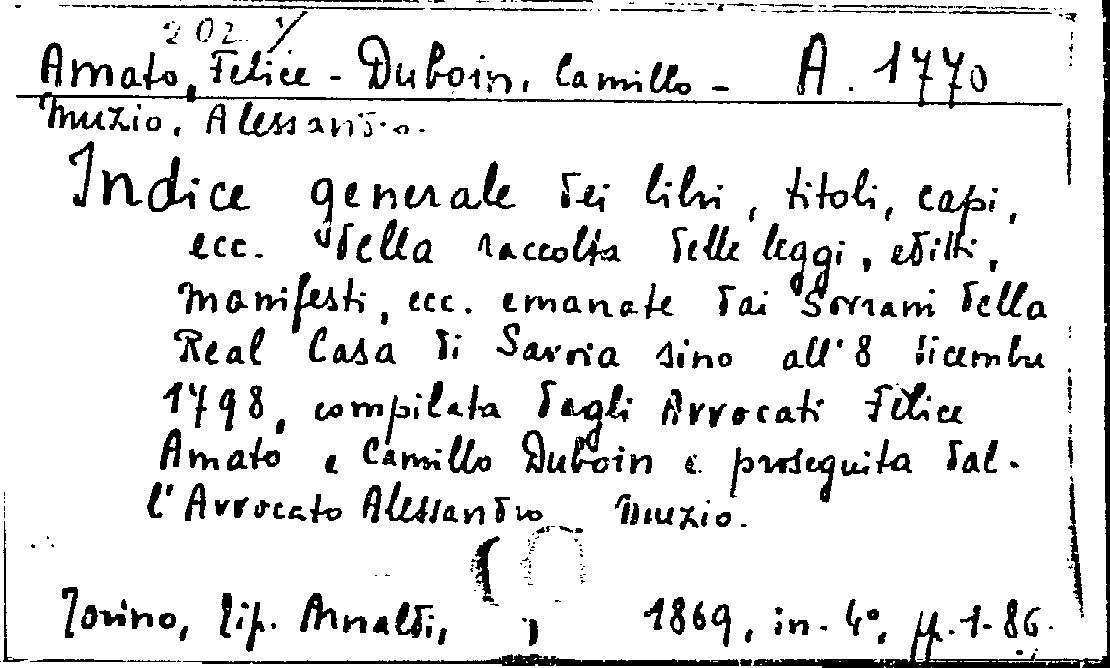 202.
Amato, Felice - Duboin, Camillo - A. 1770
Muzio, Alessandro.
Indice generale dei libri, titoli, capi,
ecc. della raccolta delle leggi, editti,
manifesti, ecc. emanate dai Sovrani della
Real Casa di Savoia sino all' 8 dicembre
1798, compilata dagli Avvocati Felice
Amato e Camillo Duboin e proseguita dal-
l'Avvocato Alessandro Muzio.
Torino, tip. Arnaldi, 1869, in-4°, pp. 1-86.